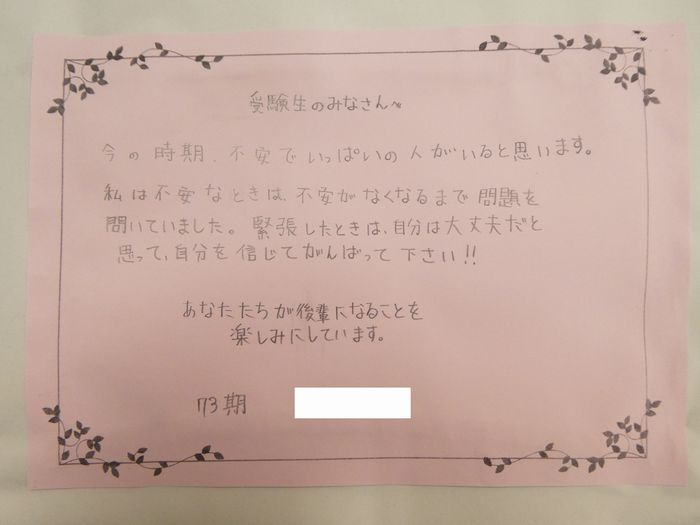 受験生のみなさんへ
今の時期、不安でいっぱいの人がいると思います。
私は不安なときは、不安がなくなるまで問題を
聞いていました。緊張したときは、自分は大丈夫だと
思って、自分を信じてがんばって下さい!!
あなたたちが後輩になることを
楽しみにしています。
73期